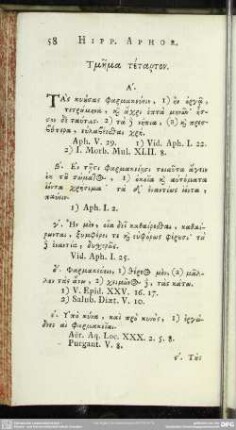 58 HIPP. APHOR.
Τμῆμα τέταρτον.
Α'.
Τὰς κυούσας φαρμακεύειν, 1) ἢν ὀργᾷ,
τετράμηνα, καὶ ἄχρι ἑπτὰ μηνῶν· ἧσ-
σον δὲ ταύτας· 2) τὰ νήπια, καὶ πρεσ-
βύτερα, εὐλαβέεσθαι χρή.
Aph. V. 29. 1) Vid. Aph. I. 22.
2) I. Morb. Mul. XLII. 8.
β'. Ἐν τῇσι φαρμακείῃσι τοιαῦτα ἄγειν
ἐκ τοῦ σώματος, 1) ὁκοῖα καὶ αὐτόματα
ἰόντα χρήσιμα· τὰ δ' ἐναντίως ἰόντα,
παύειν.
1) Aph. I. 2.
γ'. Ἢν μὲν, οἷα δεῖ καθαίρεσθαι, καθαί-
ρωνται, ξυμφέρει τε καὶ εὐφόρως φέρουσι· τὰ
δ' ἐναντία, δυσχερῶς.
Vid. Aph. I. 25.
δ'. Φαρμακεύειν, 1) θέρεος μὲν, 2) μᾶλ-
λον τὰς ἄνω, 2) χειμῶνος δὲ, τὰς κάτω.
1) V. Epid. XXV. 16. 17.
2) Salub. Diæt. V. 10.
ε'. Ὑπὸ κύνα, καὶ πρὸ κυνὸς, 1) ἐργώ-
δεες αἱ φαρμακεῖαι.
Aër. Aq. Loc. XXX. 2. 5. 8.
Purgant. V. 8.
ς'. Τοὺς